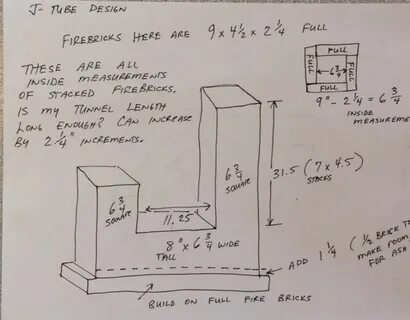 J-TUBE DESIGN
FIREBRICKS HERE ARE 9 x 4 1/2 x 2 1/4 FULL
THESE ARE ALL
INSIDE MEASUREMENTS
OF STACKED FIREBRICKS.
IS MY TUNNEL LENGTH
LONG ENOUGH? CAN INCREASE
BY 2 1/4" INCREMENTS.
FULL
FULL
6 3/4
FULL
FULL
9" - 2 1/4 = 6 3/4
INSIDE
MEASUREME
6 3/4
SQUARE
11.25
6 3/4
SQUARE
31.5 (7 x 4.5)
STACKS
8" x 6 3/4 WIDE
TALL
ADD 1 1/4 (1/2 BRICK T
MAKE ROOM
FOR ASH
BUILD ON FULL FIRE BRICKS